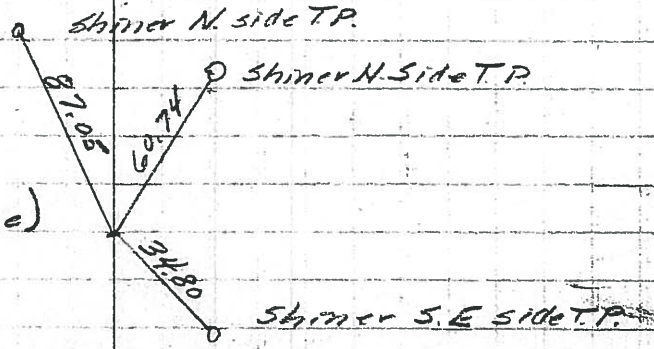 Shiner N. side T.P.
Shiner N. Side T.P.
87.05
60.74
e)
34.80
Shiner S.E side T.P.